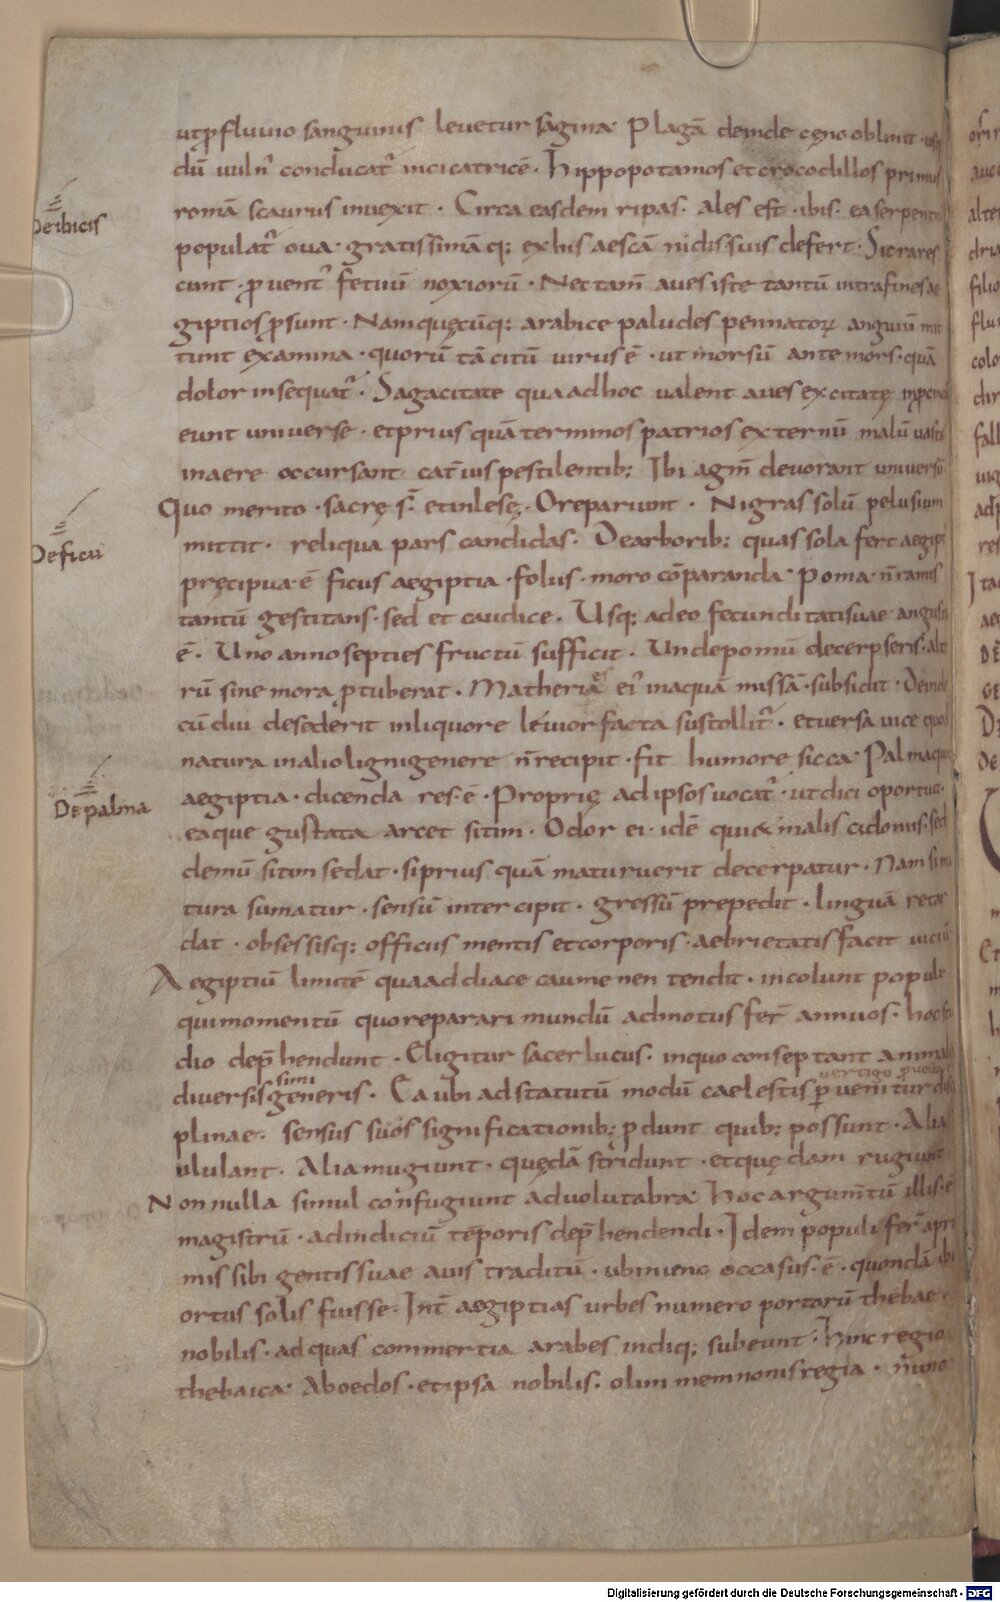 utꝑfluuio sanguinis leuetur sagina· Plagā deinde cęno oblinit·
dū uuln̄ conducat᷑ incicatricē· Hippopotamos et crocodillos primus
romā scaurus inuexit· Circa easdem ripas· ales est·ibis· ea
Deibicis
populat᷑ oua· gratissimāq; exhis aescā nidis·suis defert· Sic rares
cunt ꝓuent᷑ fetuū noxiorū· Nectam̄ aues iste tantū intrafines ae
giptios ꝓsunt· Namquęcūq; arabice paludes pennatoꝝ anguiū mit
tunt examina· quorū tā citū uirus ē· ut morsū ante mors·quā
dolor insequat᷑· Sagacitate qua adhoc ualent aues excitatę
eunt uniuerse· et prius quā terminos patrios externū malū
inaere occursant cateruis pestilentib; Ibi agm̄ deuorant uniuersū
Quo merito·sacrę s̄· et inlesę· Ore pariunt· Nigras solū pelusium
mittit· reliqua pars candidas· De arborib; quas sola fert aegipt
Deficu
pręcipua·ē ficus aegiptia·folus·moro cōparanda· Poma n̄ ramis
tantū gestitans·sed et caudice· Usq; adeo fecunditati suae angusta
ē· Uno anno septies fructū sufficit· Unde pomū decerpseris·alte
rū sine mora ꝓtuberat· Matheria ei᷑ inaquā missā·subsidit· Deinde
cū diu desederit inliquore leuior facta sustollit᷑· et uersa uice quod
natura in alio ligni genere n̄ recipit·fit humore sicca· Palma quoq
aegiptia·dicenda res·ē· Proprię adipsos uocat᷑·ut dici oportuit·
Depalma
ea que gustata arcet sitim· Odor ei·idē qui & malis cidoniis·sed
demū sitim sedat·si prius quā maturuerit decerpatur· Nam si ma
tura sumatur·sensū intercipit· gressū prepedit· linguā retar
dat·obsessisq; officiis mentis et corporis·aebrietatis facit uiciū
Aegiptiū limitē qua ad diace caumenen tendit·incolunt populi·
qui momentū quo reparari mundū ad motus fer̄ annuos· hoc stu
dio dep̄hendunt· Eligitur sacer lucus· inquo conseptant animalia
simi uertigo
diuersis generis· Ea ubi ad statutū modū caelestis ꝑuenitur disci
plinae· sensus suos significationib; pdunt quib; possunt· Alia
ululant· Alia mugiunt· quędā stridunt·et quędam rugiunt
Nonnulla simul confugiunt ad uolutabra· Hoc argum̄tū illis·ē
magistrū·ad indiciū tēporis dep̄hendendi· Idem populi fer̄ apri
mis sibi gentis suae auis traditū·ubi nunc occasus·ē·quondā ibi
ortus solis fuisse· Int᷑ aegiptias urbes numero portarū thebae
nobilis·ad quas commertia arabes undiq; subeunt· Hinc regio
thebaica· Aboedos·et ipsa nobilis· olim memnonis regia·